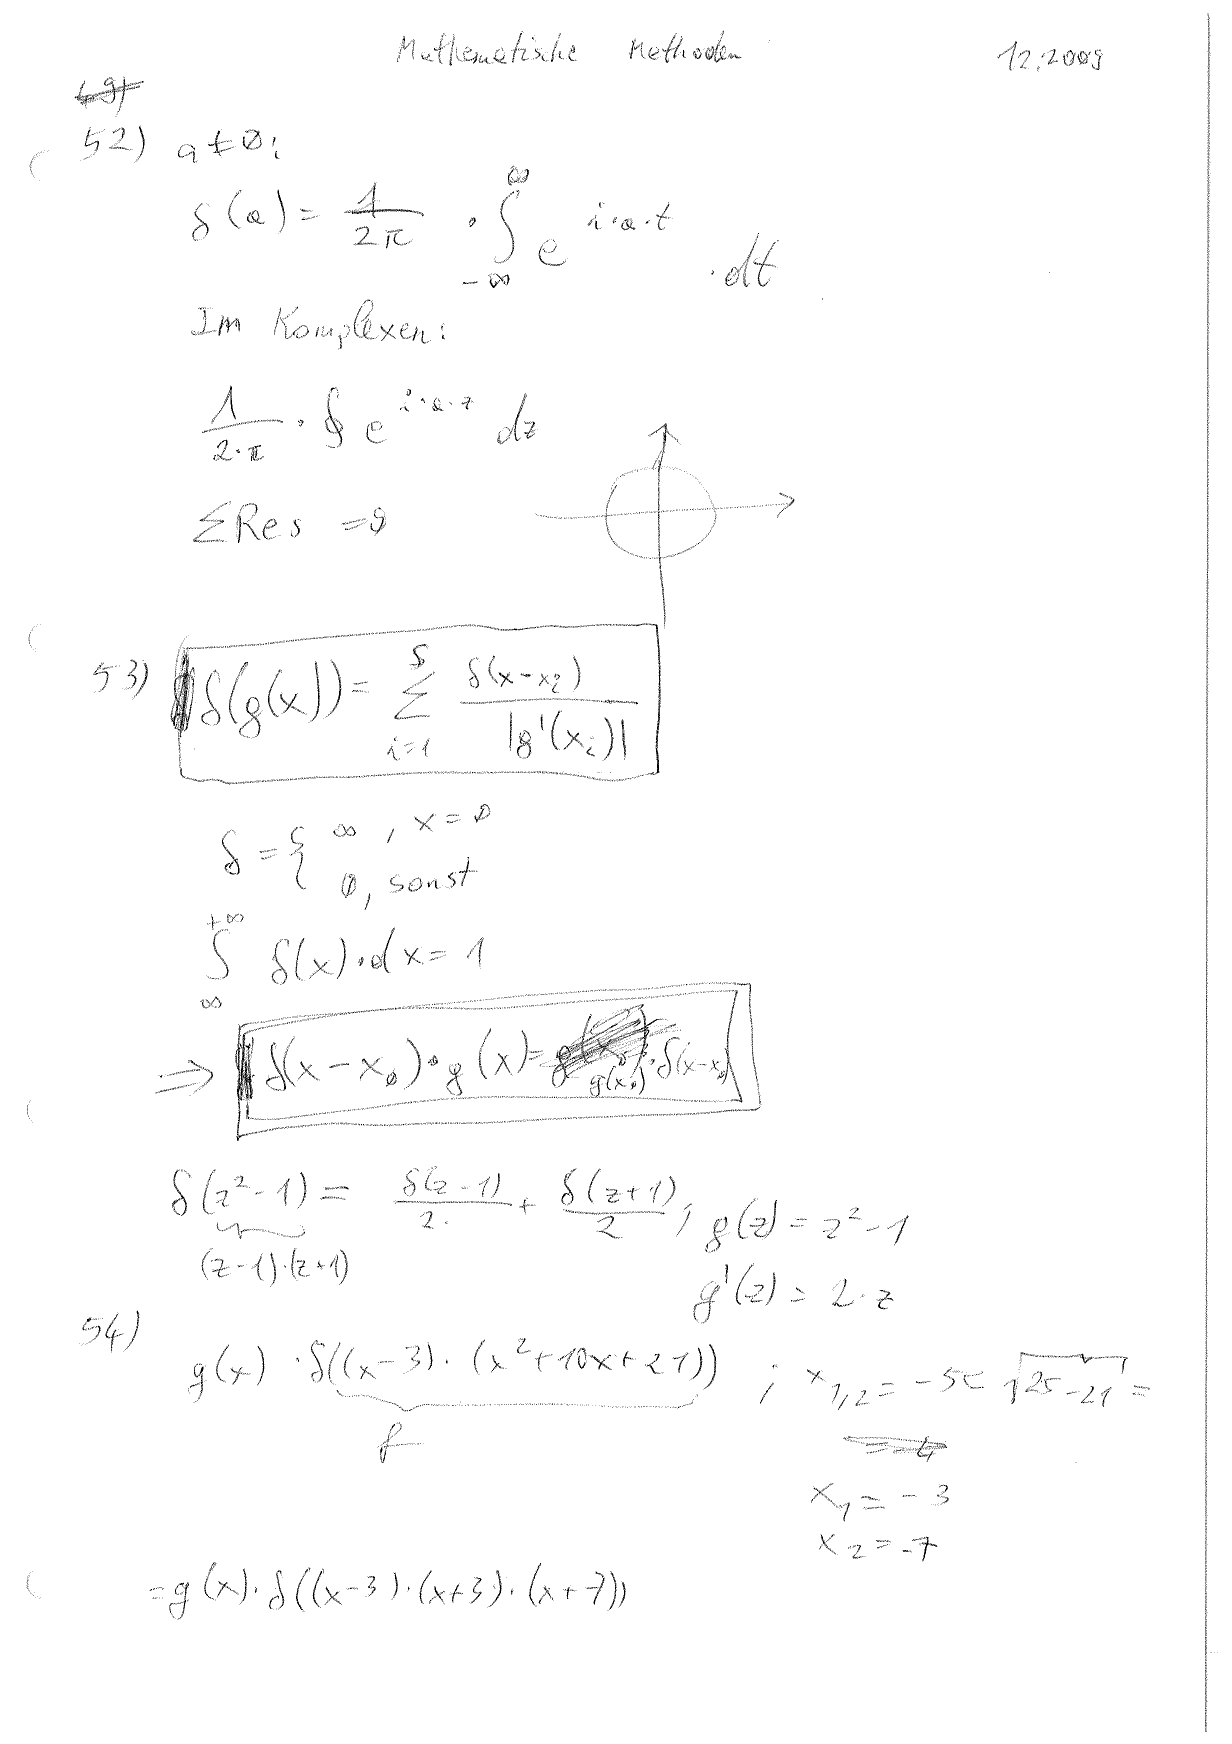 Mathematische Methoden 12.2009
52) a ≠ 0:
δ(a) = 1/2π · ∫_{-∞}^{∞} e^{i·a·t} · dt
Im Komplexen:
1/2·π · ∮ e^{i·a·z} dz
ΣRes = 0
53) δ(g(x)) = Σ_{i=1}^{s} δ(x-x_i)/|g'(x_i)|
δ = { ∞, x = 0
0, sonst
∫_{∞}^{+∞} δ(x)·dx = 1
⇒ δ(x-x_0)·g(x) = g(x_0)·δ(x-x_0)
δ(z²-1) = δ(z-1)/2 + δ(z+1)/2 ; g(z) = z²-1
(z-1)·(z+1)
g'(z) = 2·z
54)
g(x) · δ((x-3)·(x²+10x+21)) ; x_{1,2} = -5 ± √25-21 =
f
x_1 = -3
x_2 = -7
= g(x)·δ((x-3)·(x+3)·(x+7))